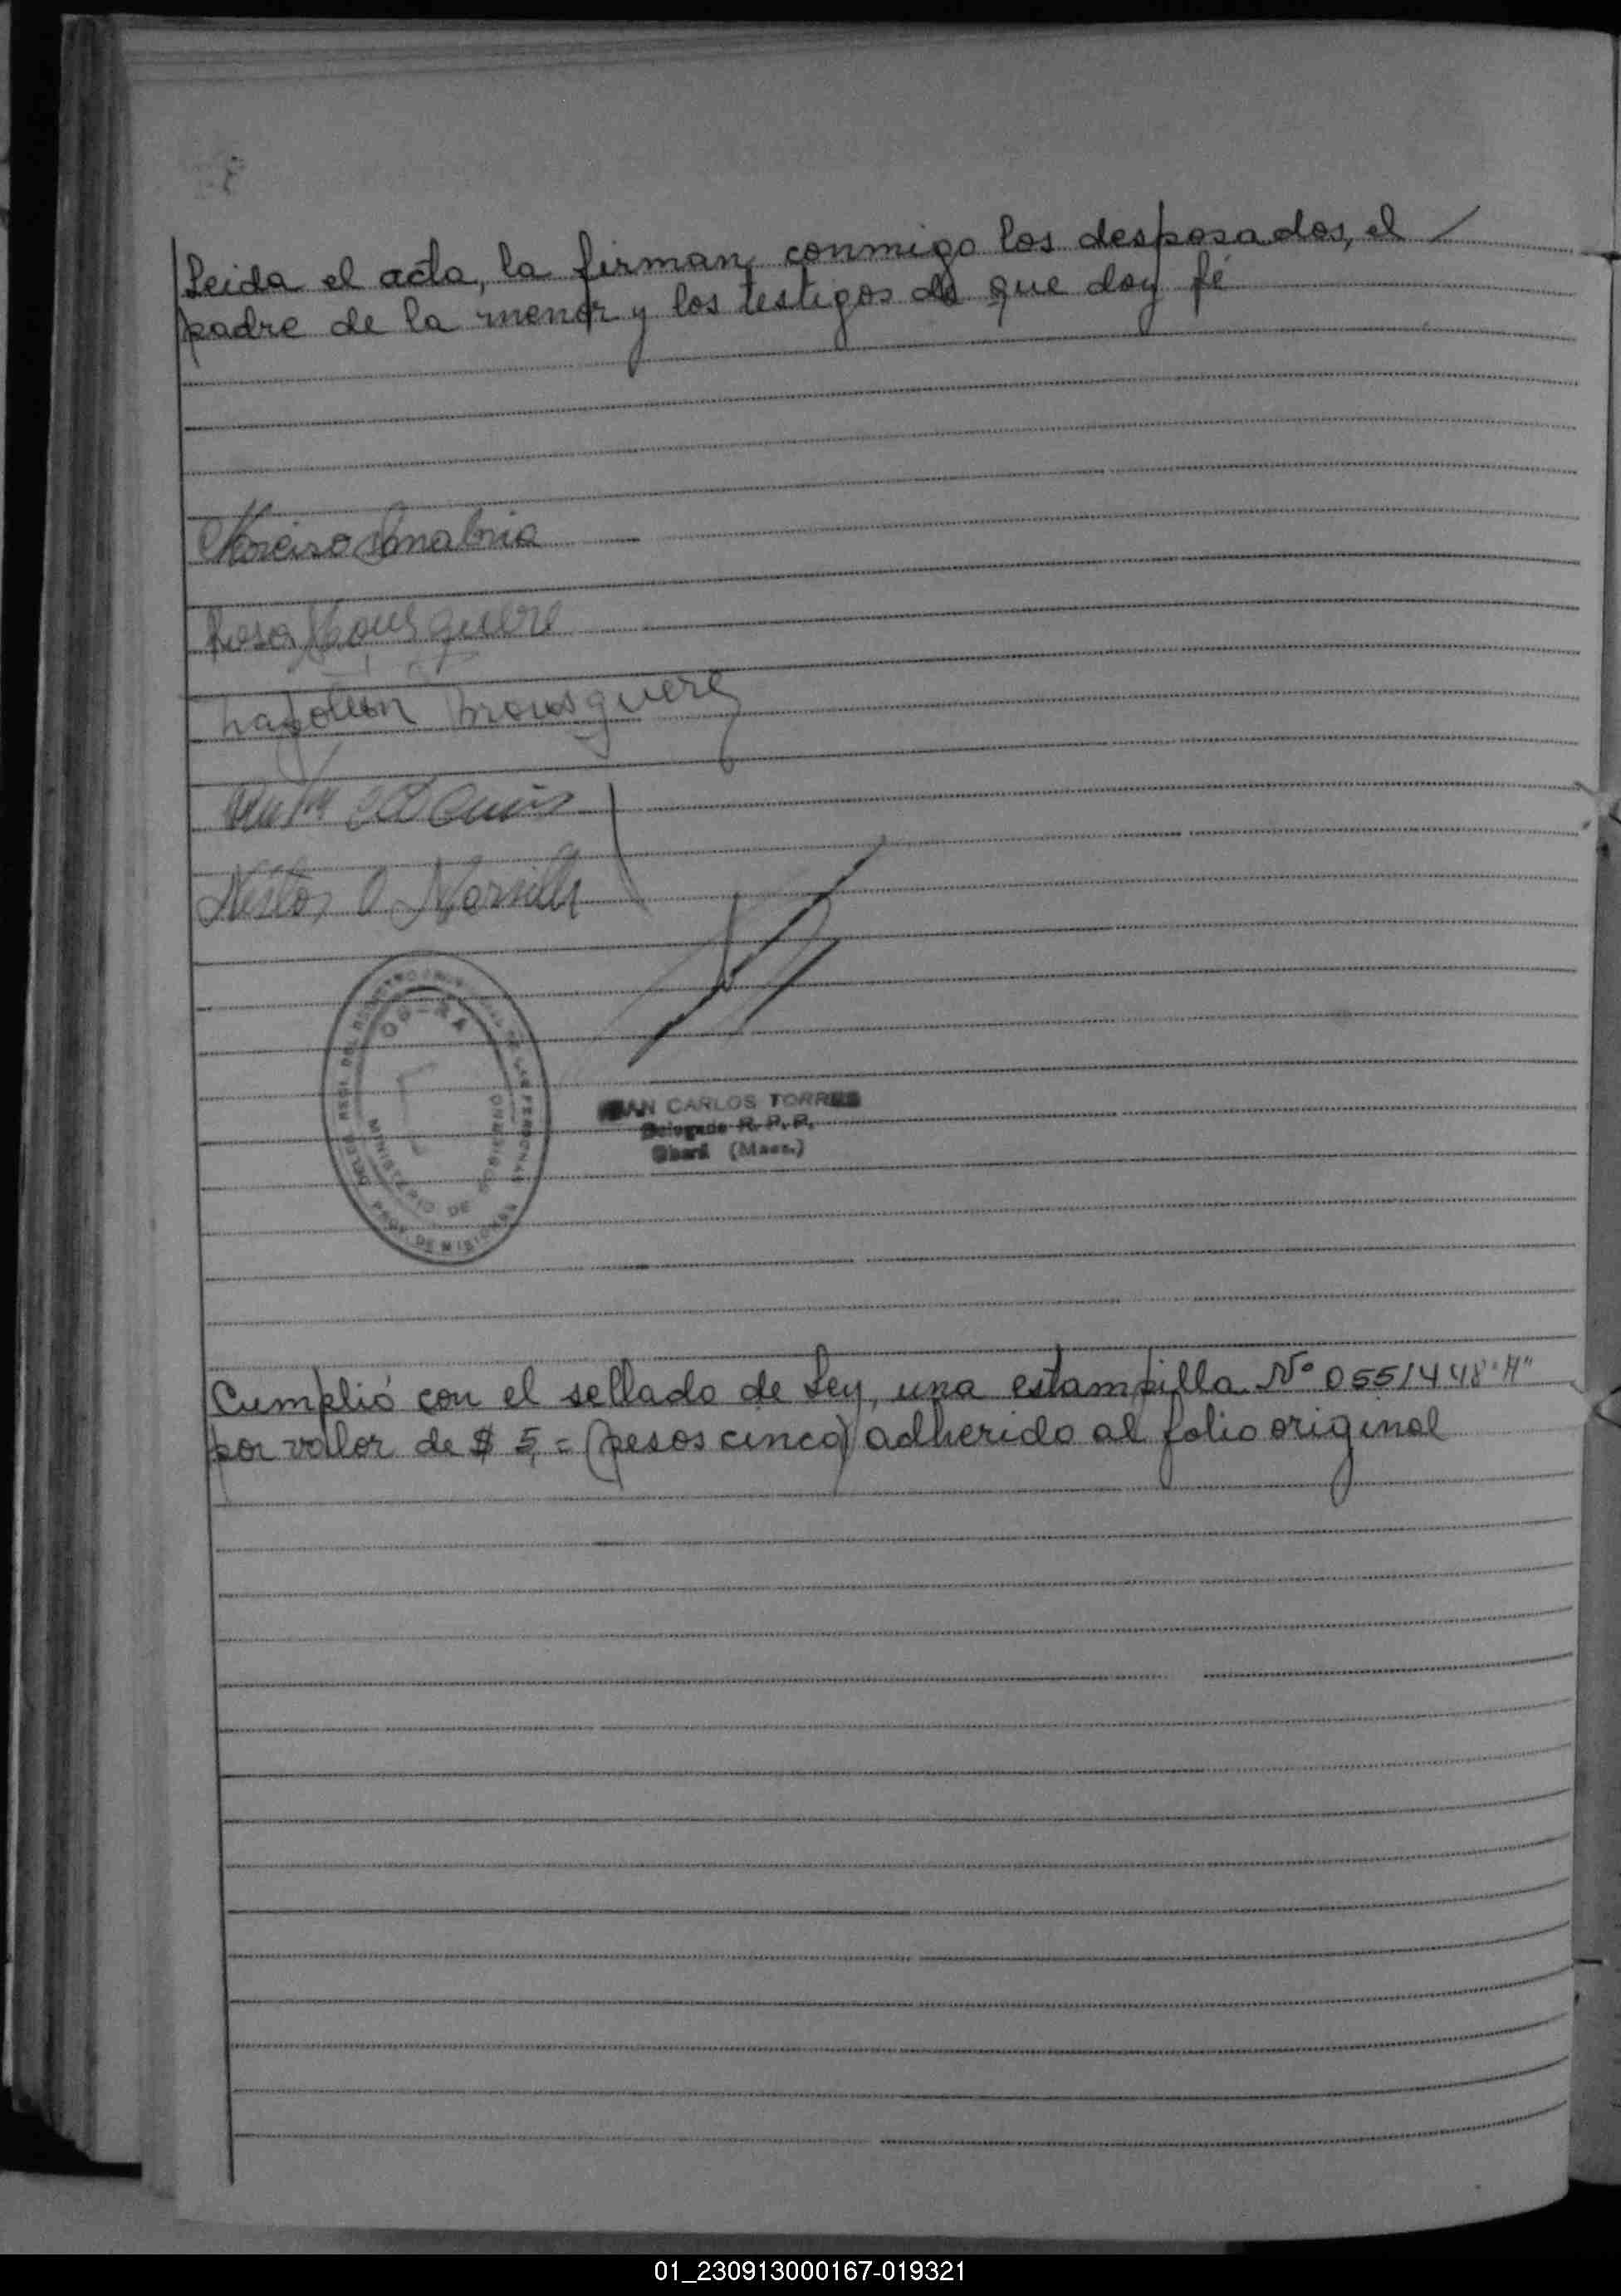 Leida el acta, la firman conmigo los desposados, el
padre de la menor y los testigos de que doy fé
Narciso Sanabria
Rosa
Napoleon
Nestor O.
OBERA
MINISTERIO DE GOBIERNO
PROV. DE MISIONES
JUAN CARLOS TORRES
Delegado R. P. P.
Oberá (Mnes.)
Cumplió con el sellado de Ley, una estampilla Nº 0551448 "A"
por valor de $ 5,= (pesos cinco) adherido al folio original
01_230913000167-019321